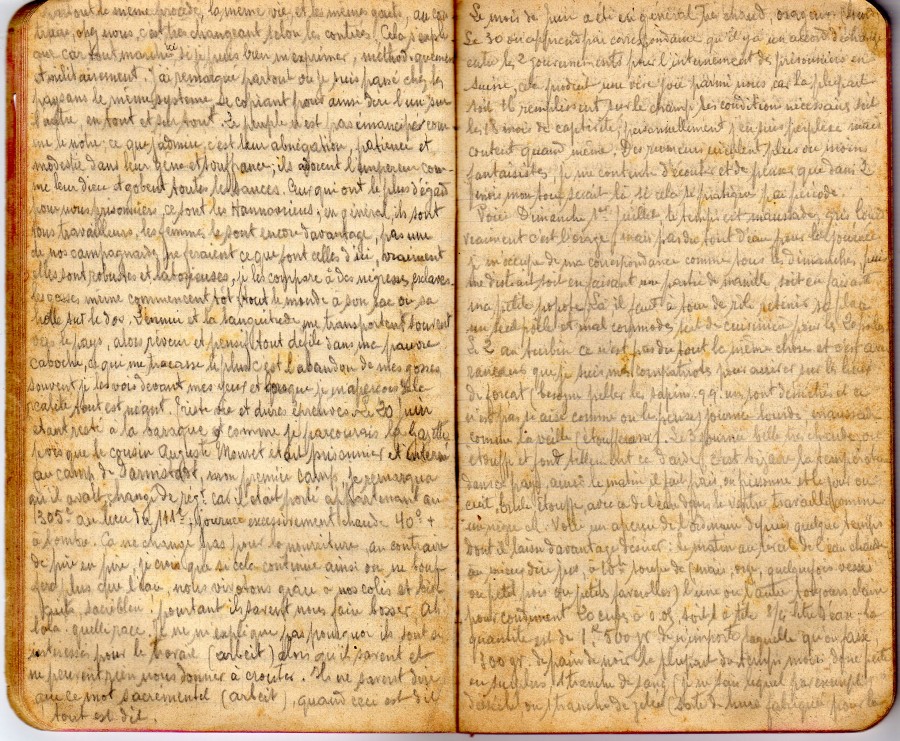 partout le même procédé, la même vie, et les mêmes gouts, au con-
traire chez nous, c'est très changeant selon les contrées. Cela s'expli
que car tout marche si je puis bien m'exprimer, méthodiquement
et militairement. J'ai remarqué partout où je suis passé chez les
paysans le même système se copiant pour ainsi dire l'un sur
l'autre, en tout et sur tout. Le peuple n'est pas émancipé com
me le notre; ce que j'admire c'est leur abnégation, patience et
modestie dans leur gêne et souffrance; ils adorent l'empereur com-
me leur dieu et gobent toutes les sauces. Ceux qui ont le plus d'égard
pour nous prisonniers, ce sont les Hannovriens; en général, ils sont
tous travailleurs, les femmes le sont encor davantage, pas une
de nos campagnardes ne feraient ce que font celles d'ici, vraiment
elles sont robustes et laborieuses, je les compare à des négresses esclaves
les gosses même commencent tôt, tout le monde a son sac ou sa
hotte sur le dos. L'ennui et la me transportent souvent
vers le pays, alors rêveur et pensif tout défile dans ma pauvre
caboche, ce qui me tracasse le plus c'est l'abandon de mes gosses
souvent je les vois devant mes yeux et lorsque je m'aperçois de la
réalité tout est néant. Triste vie et dures épreuves. Le 20 Juin
étant resté à la baraque et comme je parcourais la Gazette
vois que le cousin Auguste Mouret était prisonnier et interné
au camp de Darmstadt, mon premier camp, je remarqua
qu'il avait changé de régt. car il était porté appartenant au
305e au lieu du 111e. Journée excessivement chaude 40° +
à l'ombre. Ça ne change pas pour la nourriture, au contraire
de pire en pire, je crois que si cela continue ainsi on ne
plus que l'eau, nous vivotons grâce à nos colis et
sacrebleu! pourtant ils savent nous faire bosser. Ah!
lala. quelle race. Je ne m'explique pas pourquoi ils sont si
intéressés pour le travail (arbeit) alors qu'ils savent et
ne peuvent rien nous donner à croûter. Ils ne savent dire
que ce mot sacramentel (arbeit), quand ceci est dit
tout est dit.
Le mois de juin a été en général très chaud, orageux
Le 30 on apprend par correspondance qu'il y a un accord d'échange
entre les 2 gouvernements pour l'internement des prisonniers en
Suisse, cela produit une vive joie parmi nous car la plupart
soit remplissent sur le champ les conditions nécessaires soit
les 18 mois de captivité, personnellement j'en suis perplexe mais
content quand même. Des rumeurs circulent plus ou moins
fantaisistes, je me contente d'écouter et de plus que dans 2
mois mon tour serait là si cela se pratique par période.
Voici Dimanche 1er juillet, le temps est maussade, gris, lourd
vraiment c'est l'orage, mais pas du tout d'eau pour la journée
je m'occupe de ma correspondance comme tous les dimanches, puis
me distrait soit en faisant une partie de manille soit en faisant
ma petite popote. Là il faut à tour de rôle retenir sa place
un seul poêle et mal commode sert de cuisinière pour les 20 poilus
Le 2 au turbin ce n'est pas du tout la même chose et c'est
que je suis mes compatriotes pour arriver sur les lieux
de forçat (besogne peller les sapins. qq. uns sont desséchés et ce
n'est pas si aisé comme on le pense, journée lourde
comme la veille (étouffement). Le 3 journée belle très chaude, on
étouffe et fond tellement ça darde, c'est bizarre la température
dans ce pays, amis le matin il fait frais, on frissonne et le jour on
cuit, brûle étouffe, avec ça de l'eau dans le ventre travailler comme
un nègre. Voici un aperçu de l'ordinaire depuis quelque temps
dont il laisse davantage à désirer: le matin au réveil de l'eau chaude
au mieux dire, à 10h soupe de (maïs, orge, quelquefois vesces
ou petits pois ou petits farevelles) l'une ou l'autre toujours claire
pour condiment 20 à 0.05 soit à tête 3/4 litre d'eau. La
quantité est de 1k 500 gr. de n'importe laquelle qu'on fasse
300 gr. de pain de noir la plupart du temps moins, donc
1 tranche de sang (je ne sais lequel par exemple)
desséché ou 1 tranche de gelée (sorte de hure fabriquée pour les